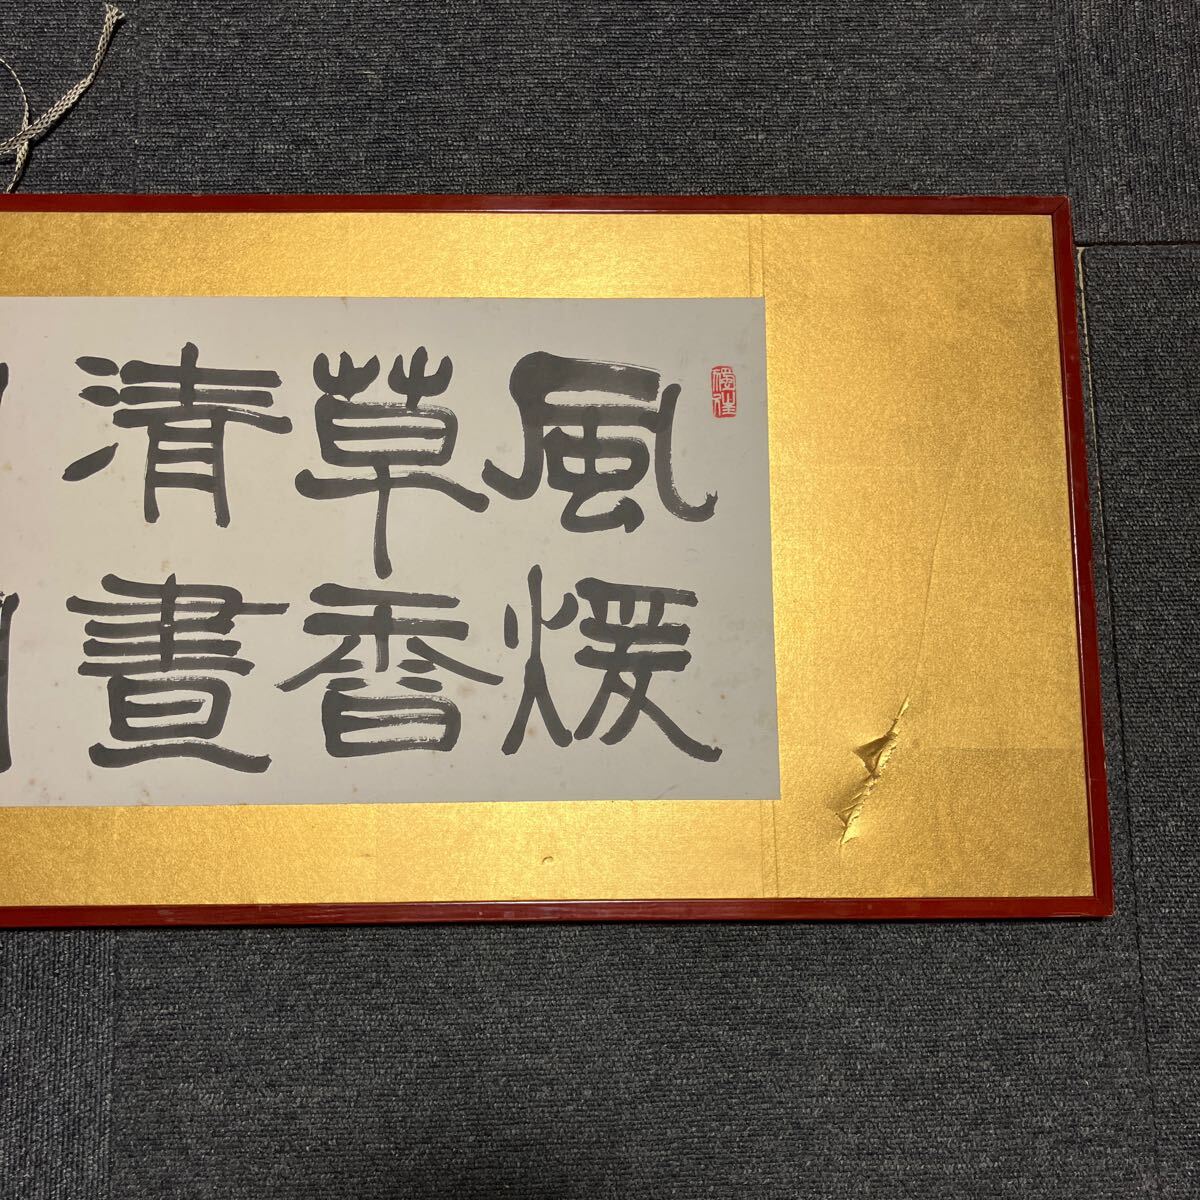 風煖
草香
清晝